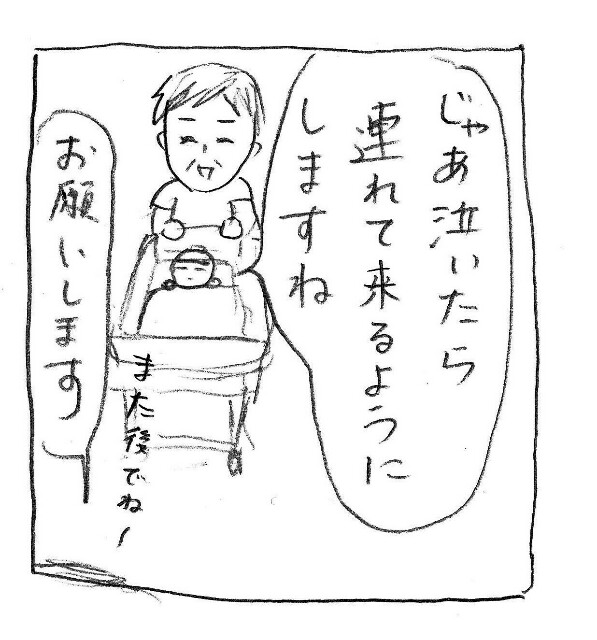 じゃあ泣いたら
連れて来るように
しますね
お願いします
また後でね〜